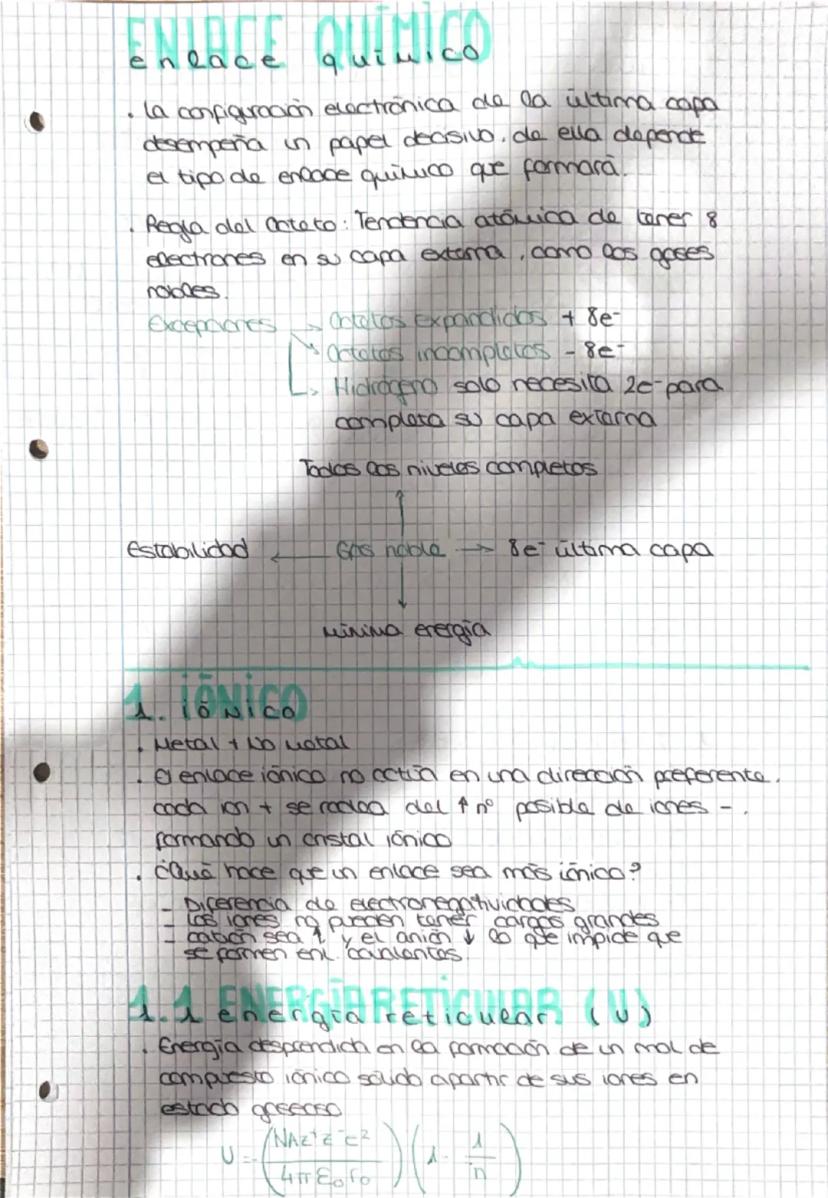 enlace químico
· La configuración electrónica de la última capa
desempeña un papel decisivo, de ella depende
el tipo de enlace químico que formará.
· Regla del Octeto: Tendencia atómica de tener 8
electrones en su capa externa, como los gases
nobles.
Excepciones → Octetos expandidos + 8e⁻
→ Octetos incompletos - 8e⁻
→ Hidrógeno solo necesita 2e⁻ para
completa su capa externa
Todos los niveles completos
↑
Estabilidad ← Gas noble → 8e⁻ última capa
↓
mínima energía
1. iónico
· Metal + No metal
· El enlace iónico no actúa en una dirección preferente,
cada ion + se rodea del ↑ nº posible de iones -,
formando un cristal iónico
· ¿Qué hace que un enlace sea más iónico?
- Diferencia de electronegatividades
- Los iones no pueden tener cargas grandes
- catión sea ↑ y el anión ↓ lo que impide que
se formen enl. covalentes.
1.1 energía reticular (U)
· Energía desprendida en la formación de un mol de
compuesto iónico sólido a partir de sus iones en
estado gaseoso
U = (NAZ⁺Z⁻e² / 4πε₀r₀) (1 - 1/n)